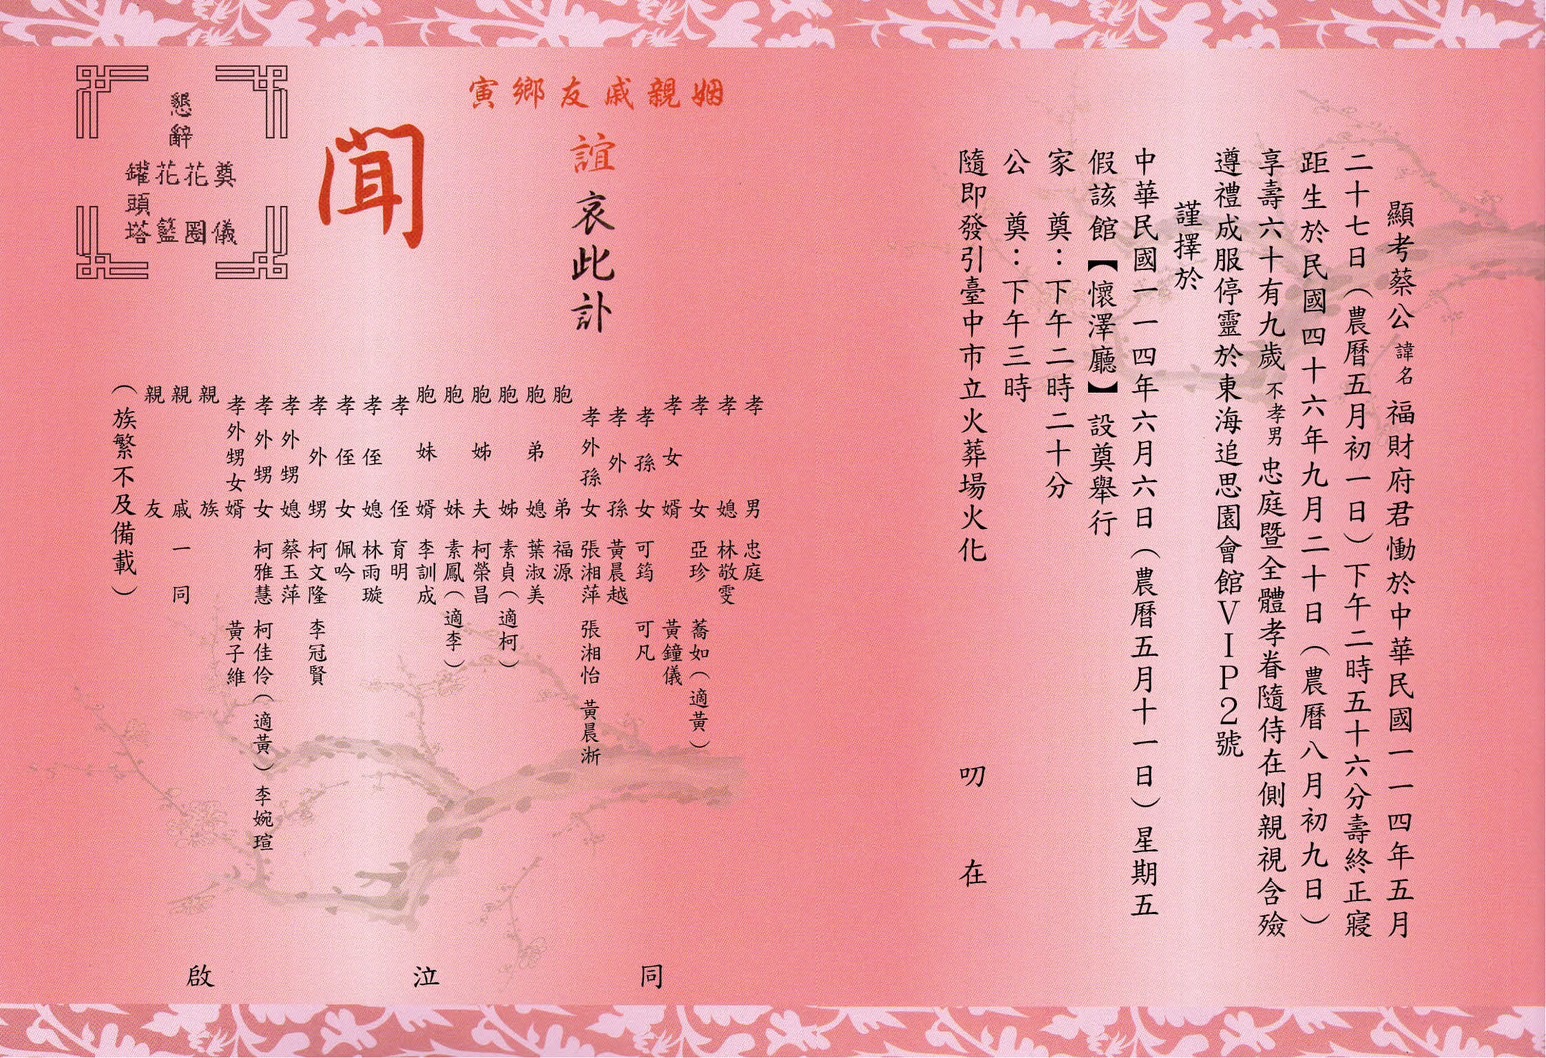 顯考蔡公諱名福財府君慟於中華民國一一四年五月
二十七日（農曆五月初一日）下午二時五十六分壽終正寢
距生於民國四十六年九月二十日（農曆八月初九日）
享壽六十有九歲不孝男忠庭暨全體孝眷隨侍在側親視含殮
遵禮成服停靈於東海追思園會館VIP2號
謹擇於
中華民國一一四年六月六日（農曆五月十一日）星期五
假該館【懷澤廳】設奠舉行
家　奠：下午二時二十分
公　奠：下午三時
隨即發引臺中市立火葬場火化　叨　在
姻親戚友鄉寅
誼哀此訃
聞
孝男 忠庭
孝媳 林敬雯
孝女 亞珍 蕎如（適黃）
孝女婿 黃鐘儀
孝孫女 可筠 可凡
孝外孫 黃晨越
孝外孫女 張湘萍 張湘怡 黃晨淅
胞弟 福源
胞弟媳 葉淑美
胞姊 素貞（適柯）
胞姊夫 柯榮昌
胞妹 素鳳（適李）
胞妹婿 李訓成
孝侄 育明
孝侄媳 林雨璇
孝侄女 佩吟
孝外甥 柯文隆 李冠賢
孝外甥媳 蔡玉萍
孝外甥女 柯雅慧 柯佳伶（適黃） 李婉瑄
孝外甥女婿 黃子維
親族
親戚 一同
親友
（族繁不及備載）
同　泣　啟
懇辭
奠儀
花圈
花籃
罐頭塔